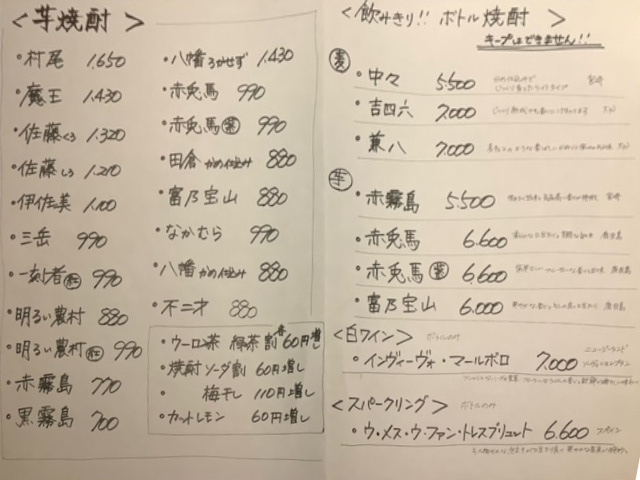 <芋焼酎>
・村尾 1.650
・魔王 1.430
・佐藤くろ 1.320
・佐藤しろ 1.210
・伊佐美 1.100
・三岳 990
・一刻者㊓ 990
・明るい農村 880
・明るい農村 990
・赤霧島 770
・黒霧島 700
・八幡ろかせず 1.430
・赤兎馬 990
・赤兎馬 紫 990
・田倉かめ仕込み 880
・富乃宝山 880
・なかむら 990
・八幡かめ仕込み 880
・不二才 880
・ウーロン茶 緑茶割 各60円増し
・焼酎ソーダ割 60円増し
・梅干し 110円増し
・カットレモン 60円増し
<飲みきり!! ボトル焼酎>
キープはできません!!
麦
・中々 5.500 宮崎
・吉四六 7.000 大分
・兼八 7.000 大分
芋
・赤霧島 5.500 宮崎
・赤兎馬 6.600 鹿児島
・赤兎馬 紫 6.600 鹿児島
・富乃宝山 6.000 鹿児島
<白ワイン> ボトルのみ
・インヴィーヴォ・マールボロ 7.000 ニュージーランド
ソーヴィニヨンブラン
<スパークリング> ボトルのみ
・ウ・メス・ウ・ファン・トレスブリュット 6.600 スペイン